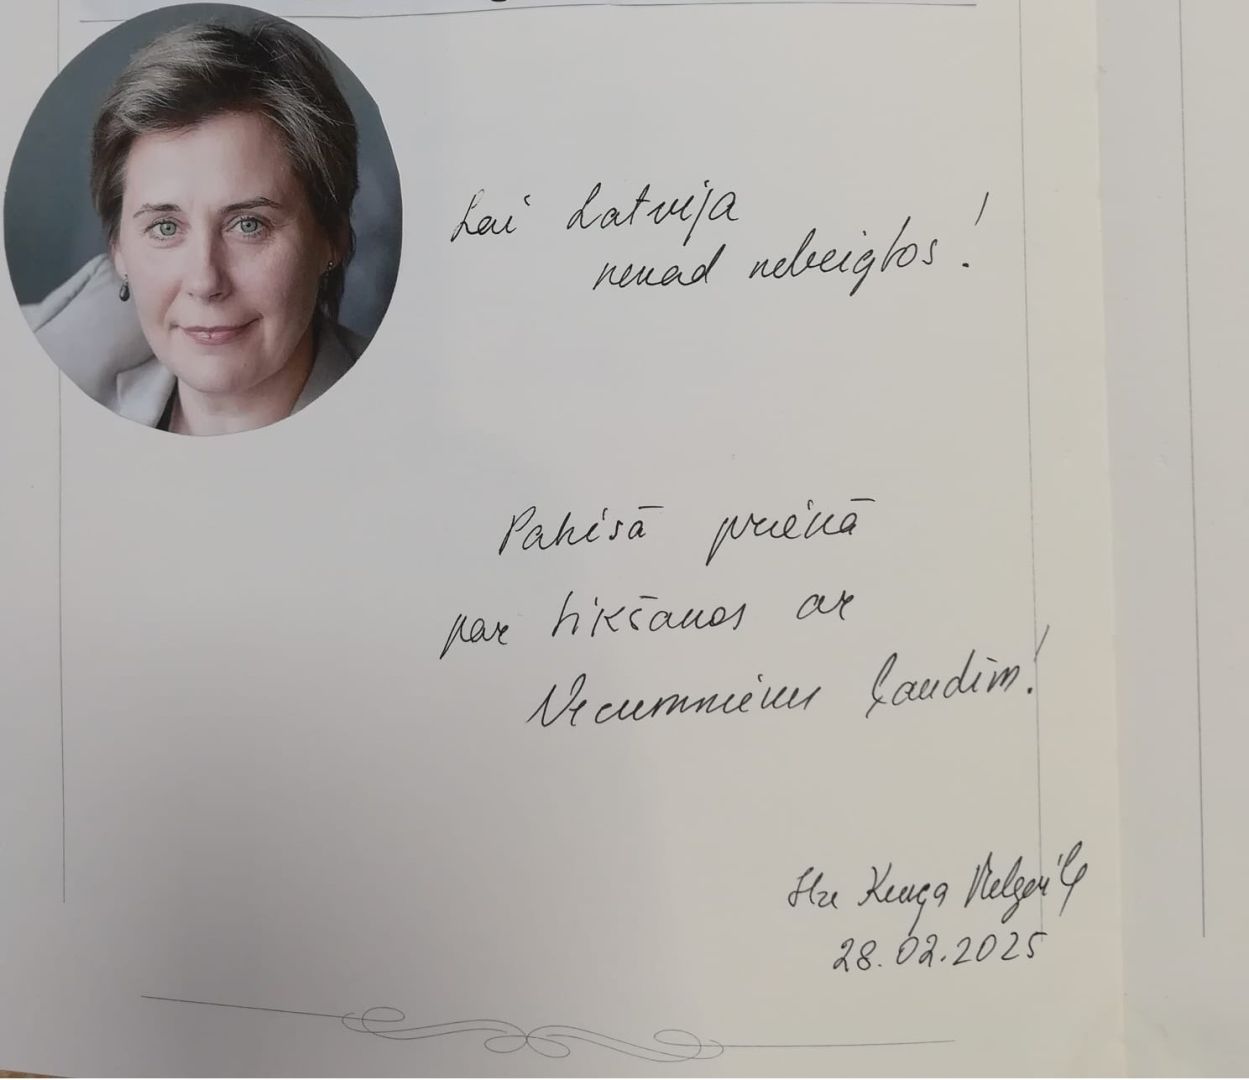 Lai Latvija
nekad nebeigtos!
Patiesā priekā
par tikšanos ar
Vecumnieku ļaudīm!
28.02.2025